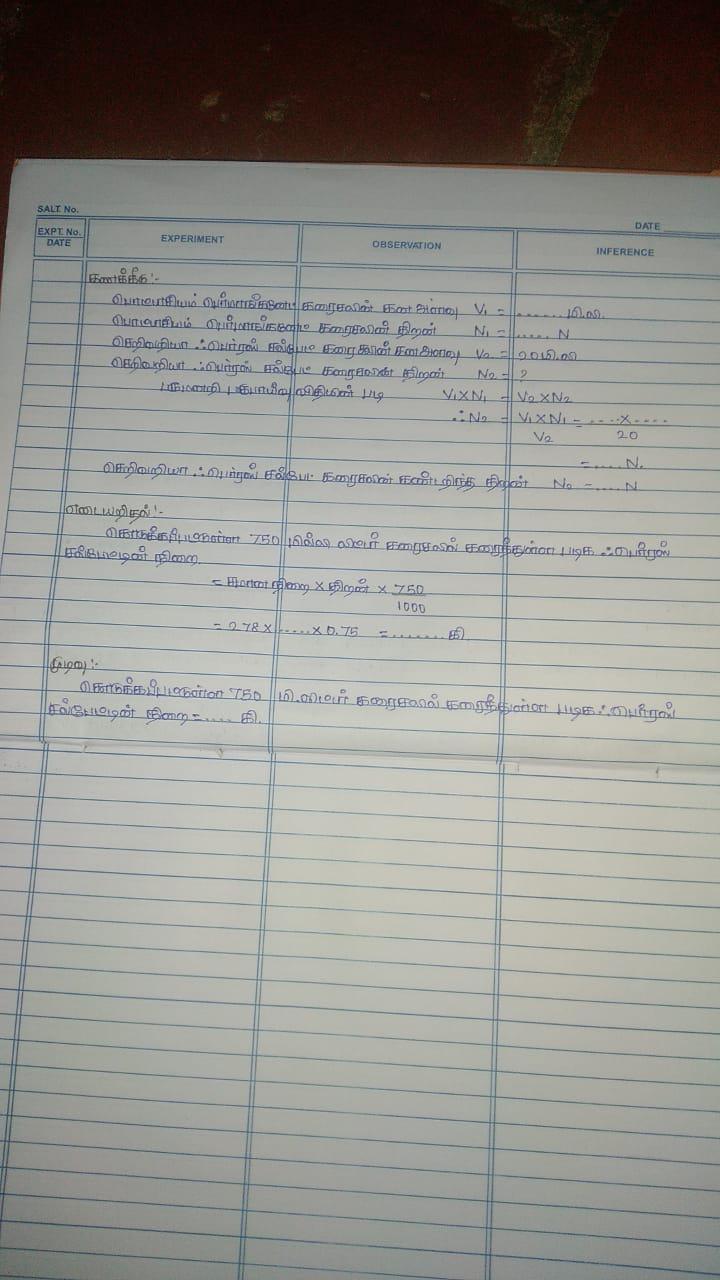 SALT. No.
DATE
EXPT. No. DATE EXPERIMENT OBSERVATION INFERENCE
கணக்கீடு:-
பொட்டாசியம் பெர்மாங்கனேட் கரைசலின் கன அளவு V₁ = ........ மி.லி.
பொட்டாசியம் பெர்மாங்கனேட் கரைசலின் திறன் N₁ = ...... N
செறிவறியா ஃபெர்ரஸ் சல்பேட் கரைசலின் கனஅளவு V₂ = 20 மி.லி
செறிவறியா ஃபெர்ரஸ் சல்பேட் கரைசலின் திறன் N₂ = ?
பருமனறி பகுப்பாய்வு விதியின் படி V₁XN₁ = V₂XN₂
∴ N₂ = V₁XN₁ = .....x.....
V₂ 20
= ..... N.
செறிவறியா ஃபெர்ரஸ் சல்பேட் கரைசலின் கண்டறிந்த திறன் N₂ = ..... N
எடையறிதல்:-
கொடுக்கப்பட்டுள்ள 750 மில்லி லிட்டர் கரைசலில் கரைந்துள்ள படிக ஃபெர்ரஸ்
சல்பேட்டின் நிறை.
= சமான நிறை × திறன் × 750
1000
= 278 × ...... × 0.75 = ........ கி
முடிவு:-
கொடுக்கப்பட்டுள்ள 750 மி.லிட்டர் கரைசலில் கரைந்துள்ள படிக ஃபெர்ரஸ்
சல்பேட்டின் நிறை = ..... கி.